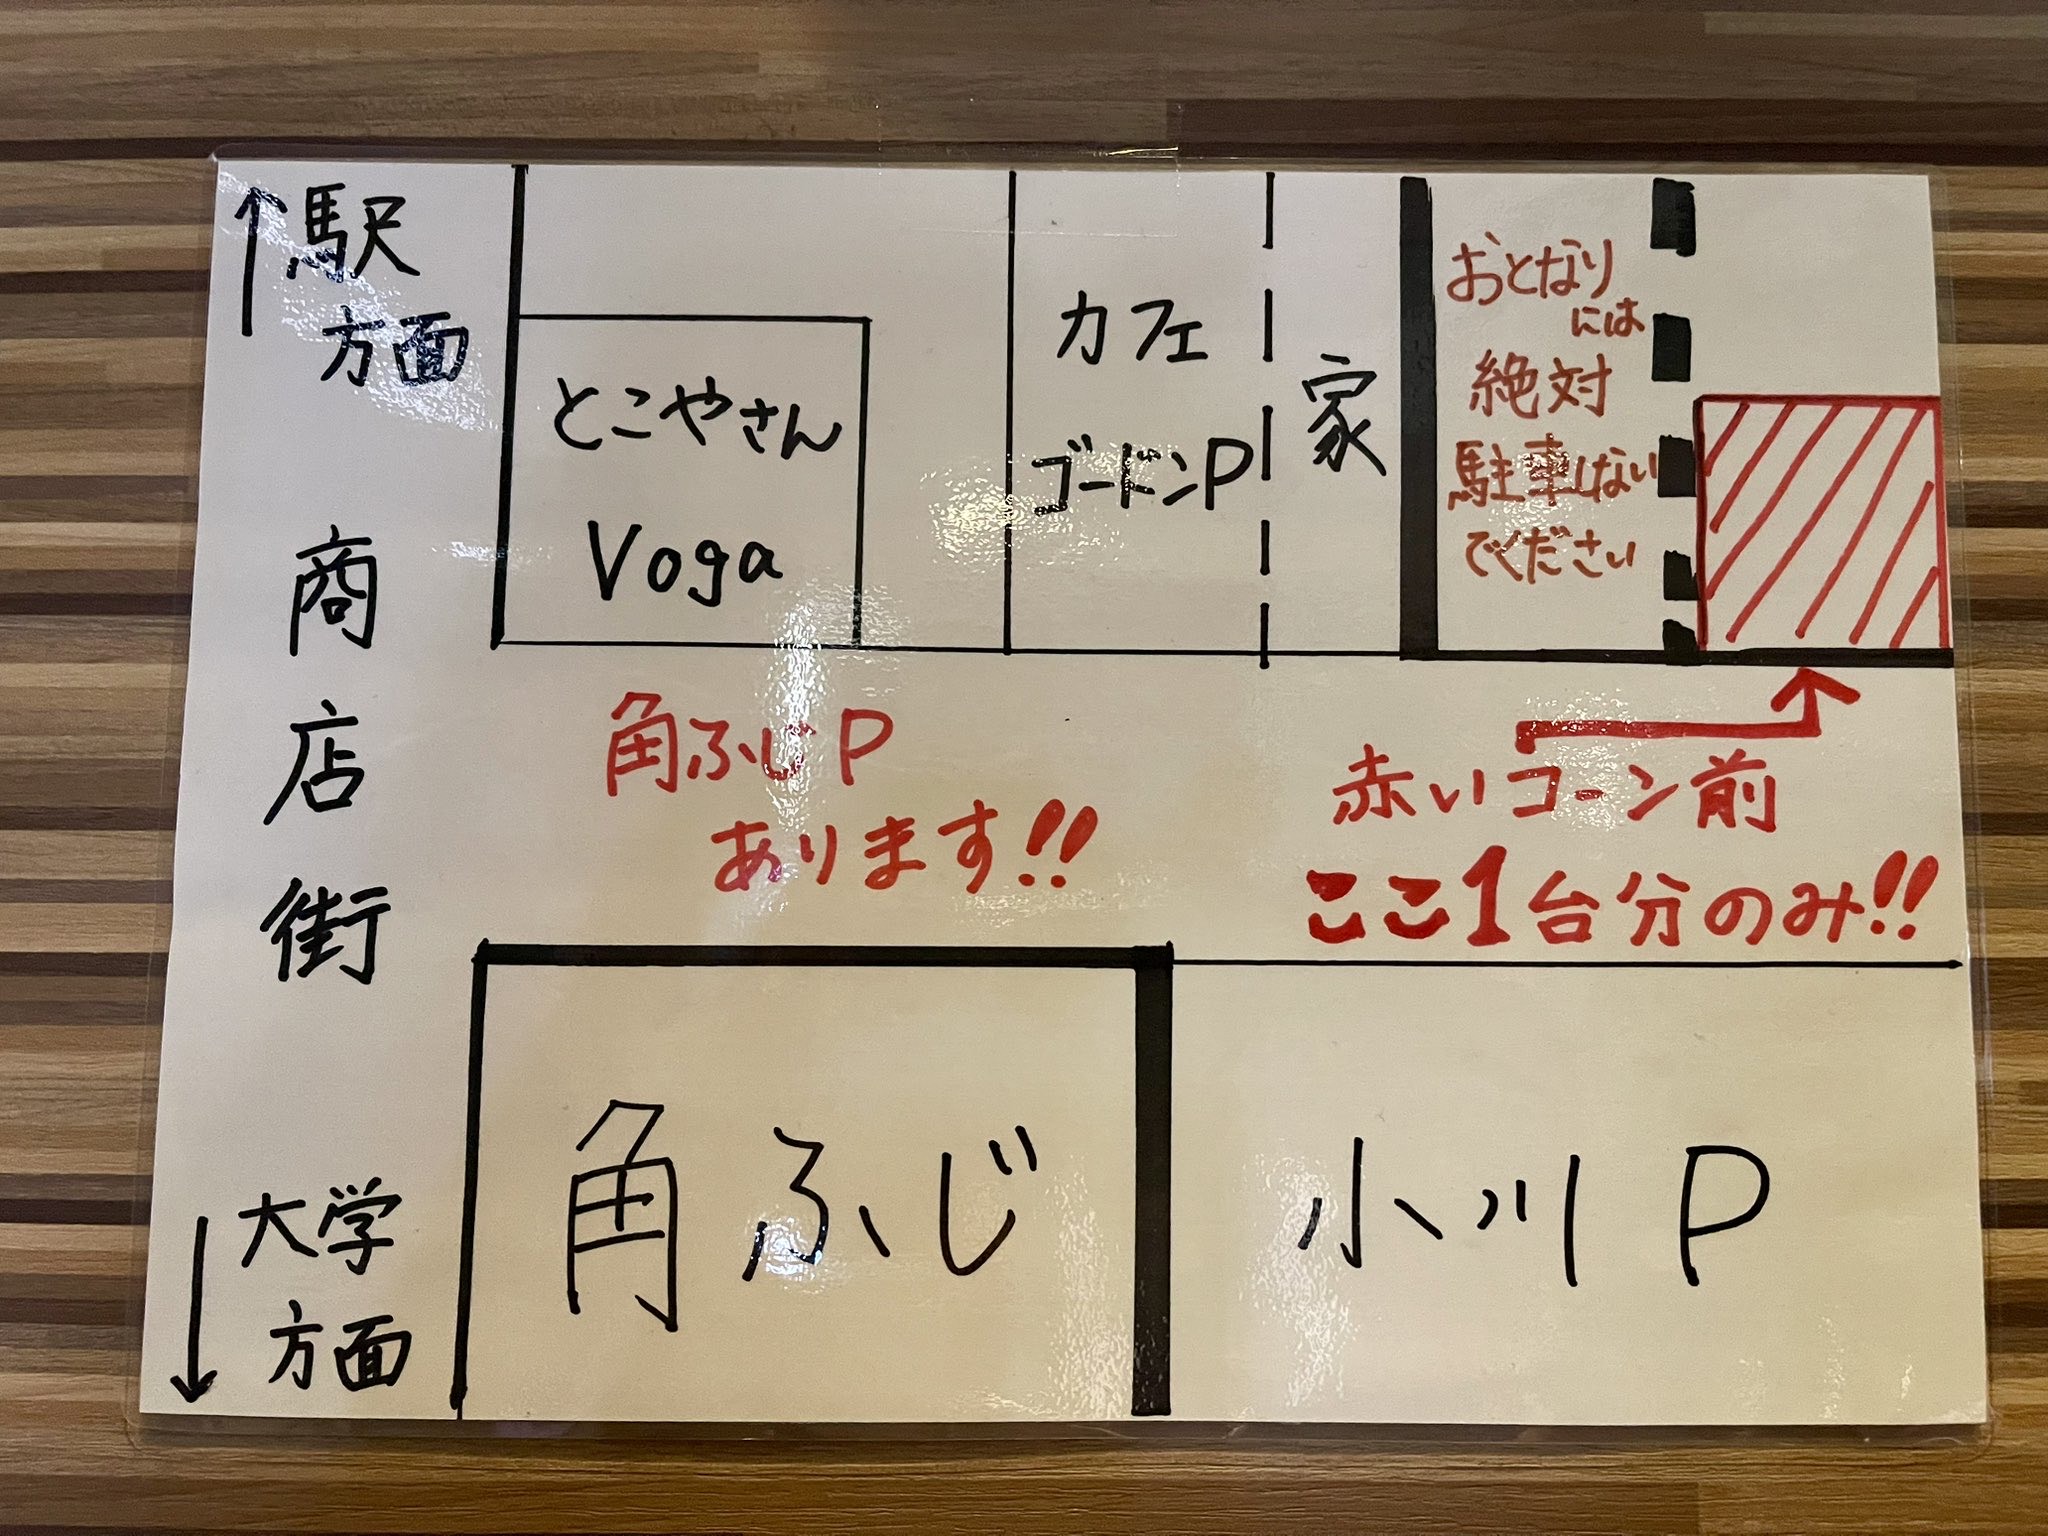 駅
方面
商店街
大学
方面
とこやさん
Voga
カフェ
ゴードンP
家
おとなり
には
絶対
駐車しない
でください
角ふじP
あります!!
赤いコーン前
ここ1台分のみ!!
角ふじ
小川P